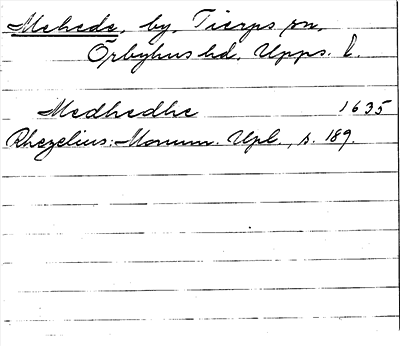 Mehede, by, Tierps sn,
Örbyhus hd. Upps. l.
Medhedhe 1635
Rhezelius: Monum. Upl., s. 189.